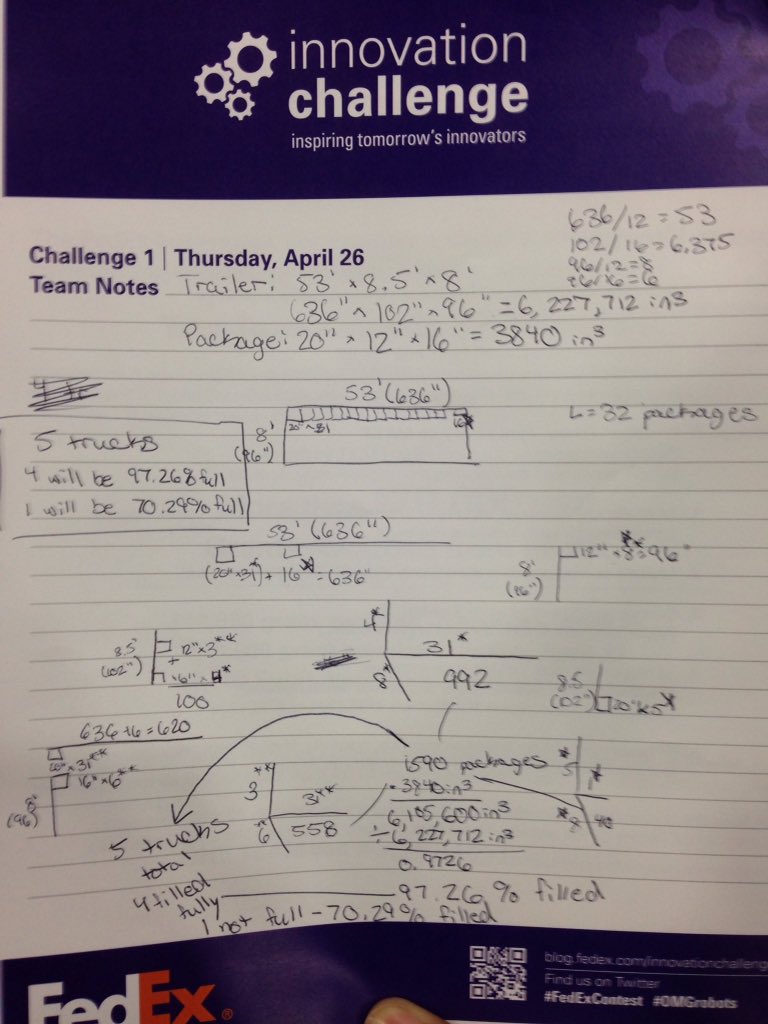 innovation
challenge
inspiring tomorrow's innovators
636/12 = 53
102/16 = 6.375
96/12 = 8
96/16 = 6
Challenge 1 | Thursday, April 26
Team Notes Trailer: 53' × 8.5' × 8'
636" × 102" × 96" = 6,227,712 in³
Package: 20" × 12" × 16" = 3840 in³
53' (636")
L = 32 packages
8'
(96")
5 trucks
4 will be 97.26% full
1 will be 70.29% full
53' (636")
(20" × 31*) + 16" = 636"
12" × 8* = 96"
8'
(96")
8.5'
(102")
12" × 3**
+
16" × 4*
100
4*
31*
8*
992
8.5
(102")
20" × 5*
636 - 16 = 620
20" × 31**
16" × 6**
8'
(96)
3**
31**
6*
558
1590 packages
· 3840 in³
6,105,600 in³
÷ 6,227,712 in³
0.9726
*5
1*
*8
40
5 trucks
total
4 filled
fully 97.26% filled
1 not full - 70.29% filled
blog.fedex.com/innovationchalleng
Find us on Twitter
#FedExContest #OMGrobots
FedEx®